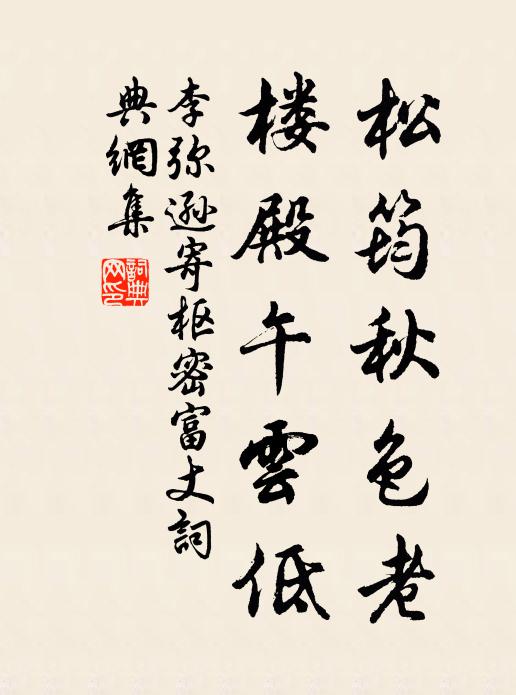 松筠秋色老
楼殿午雲低
李弥遜寄枢密富丈詞
典網集
詞典网印